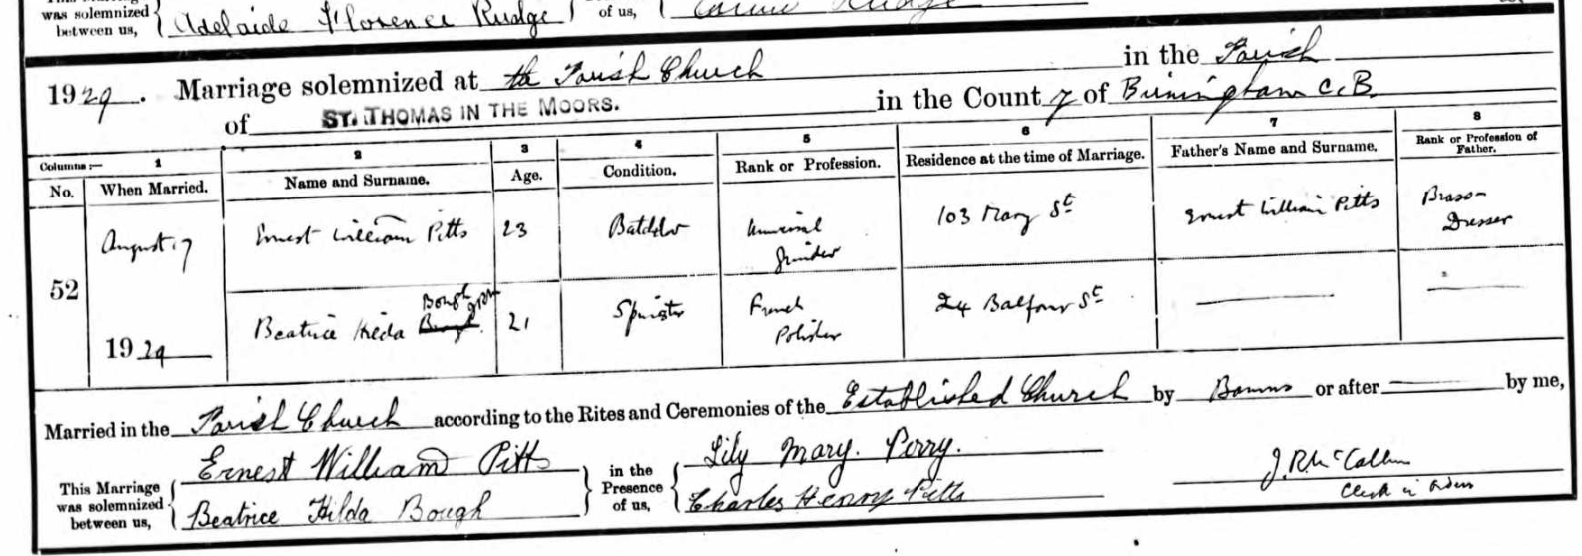 was solemnized between us, Adelaide Florence Rudge of us, Rudge
1929. Marriage solemnized at the Parish Church in the Parish
of ST. THOMAS IN THE MOORS. in the County of Birmingham C.B.
Columns :— 1 2 3 4 5 6 7 8
No. When Married. Name and Surname. Age. Condition. Rank or Profession. Residence at the time of Marriage. Father's Name and Surname. Rank or Profession of Father.
52 August 17 1929
Ernest William Pitts 23 Bachelor Universal Grinder 103 Mary St Ernest William Pitts Brass Dresser
Beatrice Hilda Bough 21 Spinster French Polisher 24 Balfour St
Married in the Parish Church according to the Rites and Ceremonies of the Established Church by Banns or after by me,
This Marriage was solemnized between us, Ernest William Pitts in the Presence of us, Lily Mary. Perry. J. R. McCallum
Beatrice Hilda Bough Charles Henry Pitts Clerk in Orders